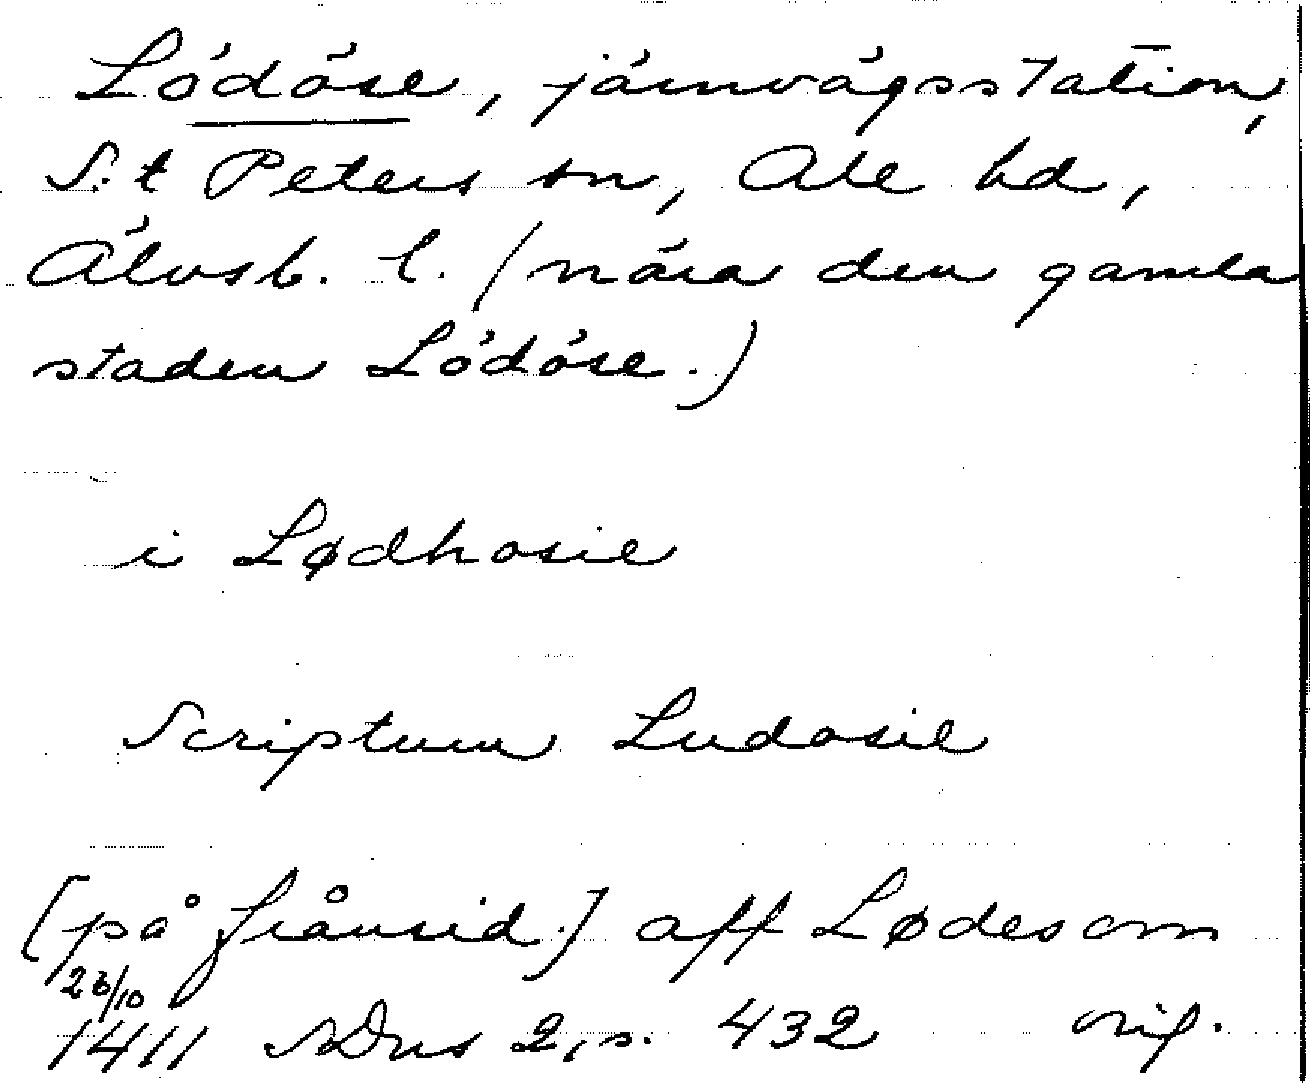 Lödöse, järnvägsstation,
S:t Peters sn, Ale hd,
Älvsb. l. (nära den gamla
staden Lödöse.)
i Lødhosie
Scriptum Ludosie
[på frånsid.] aff Lødesom
26/10
1411 SDns 2, s. 432 orig.